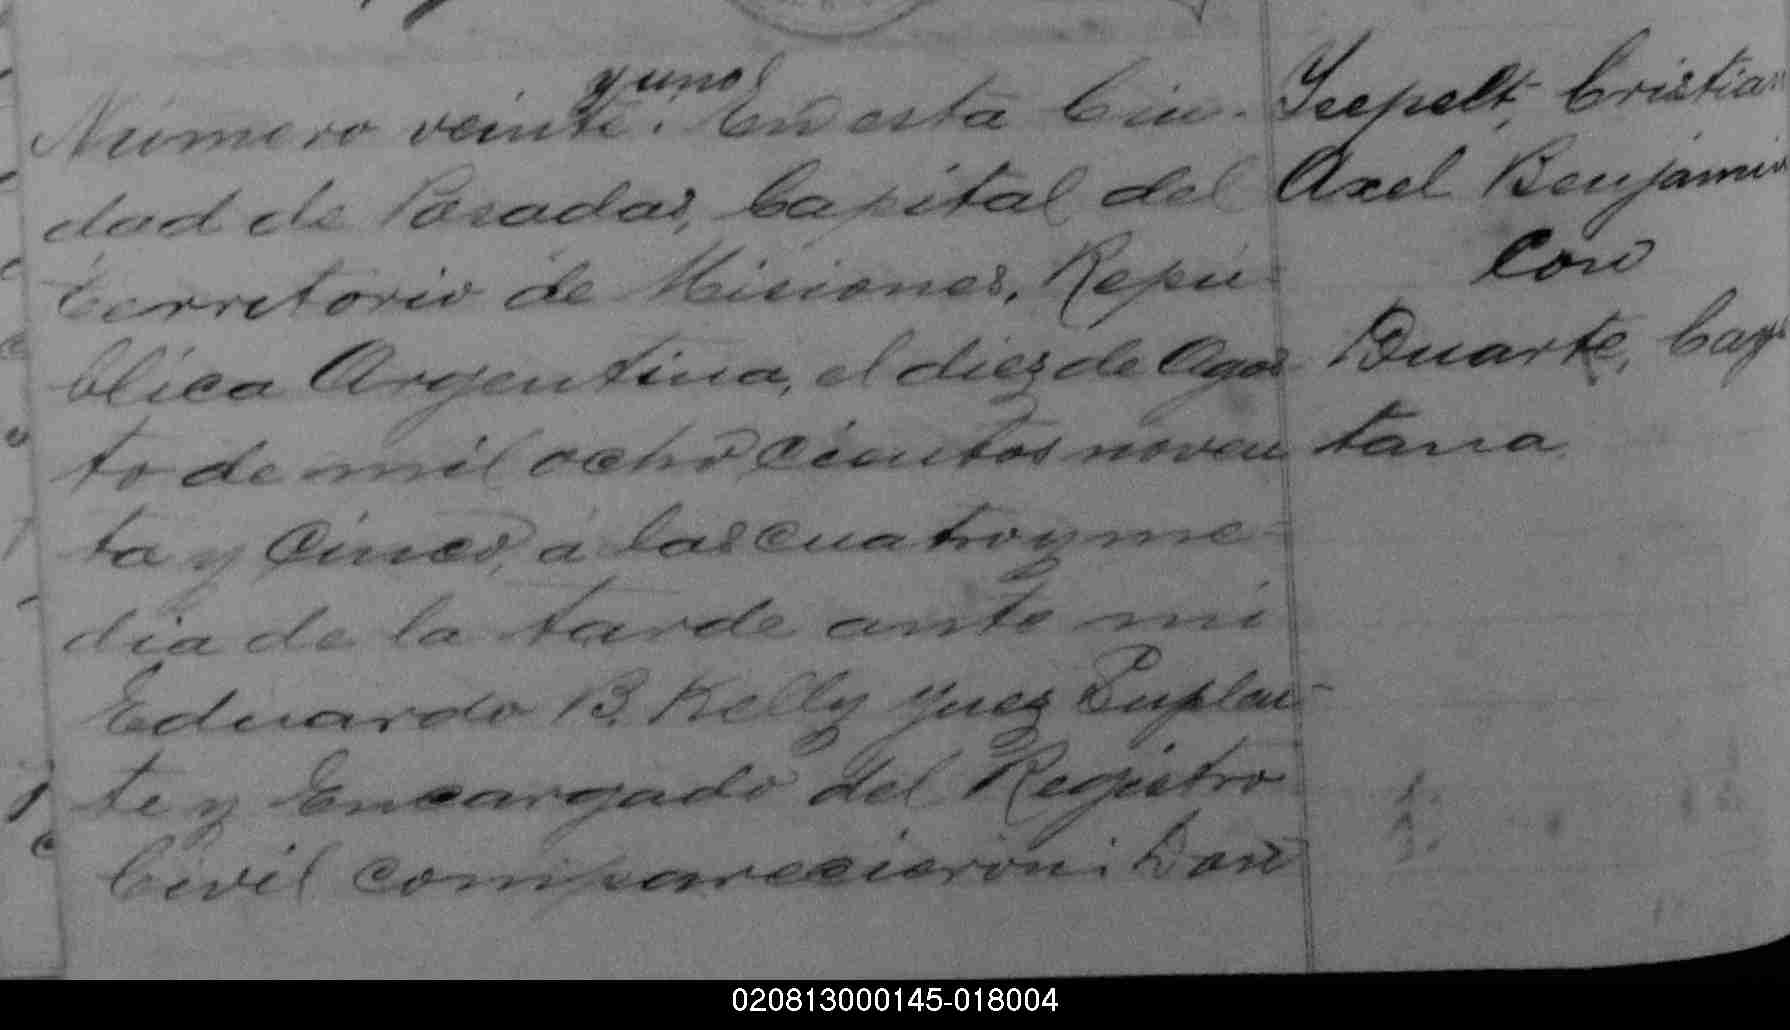 y uno
Número veinte. En esta Ciu-
dad de Posadas, Capital del
Territorio de Misiones, Repú-
blica Argentina, el diez de Agos
to de mil ochocientos noven
ta y Cinco, á las cuatro y me-
dia de la tarde ante mi
Eduardo B. Kelly Juez Suplen-
te y Encargado del Registro
Civil comparecieron: Don
Seepelt, Cristian
Axel Benjamin
Con
Duarte, Cay-
tana
020813000145-018004